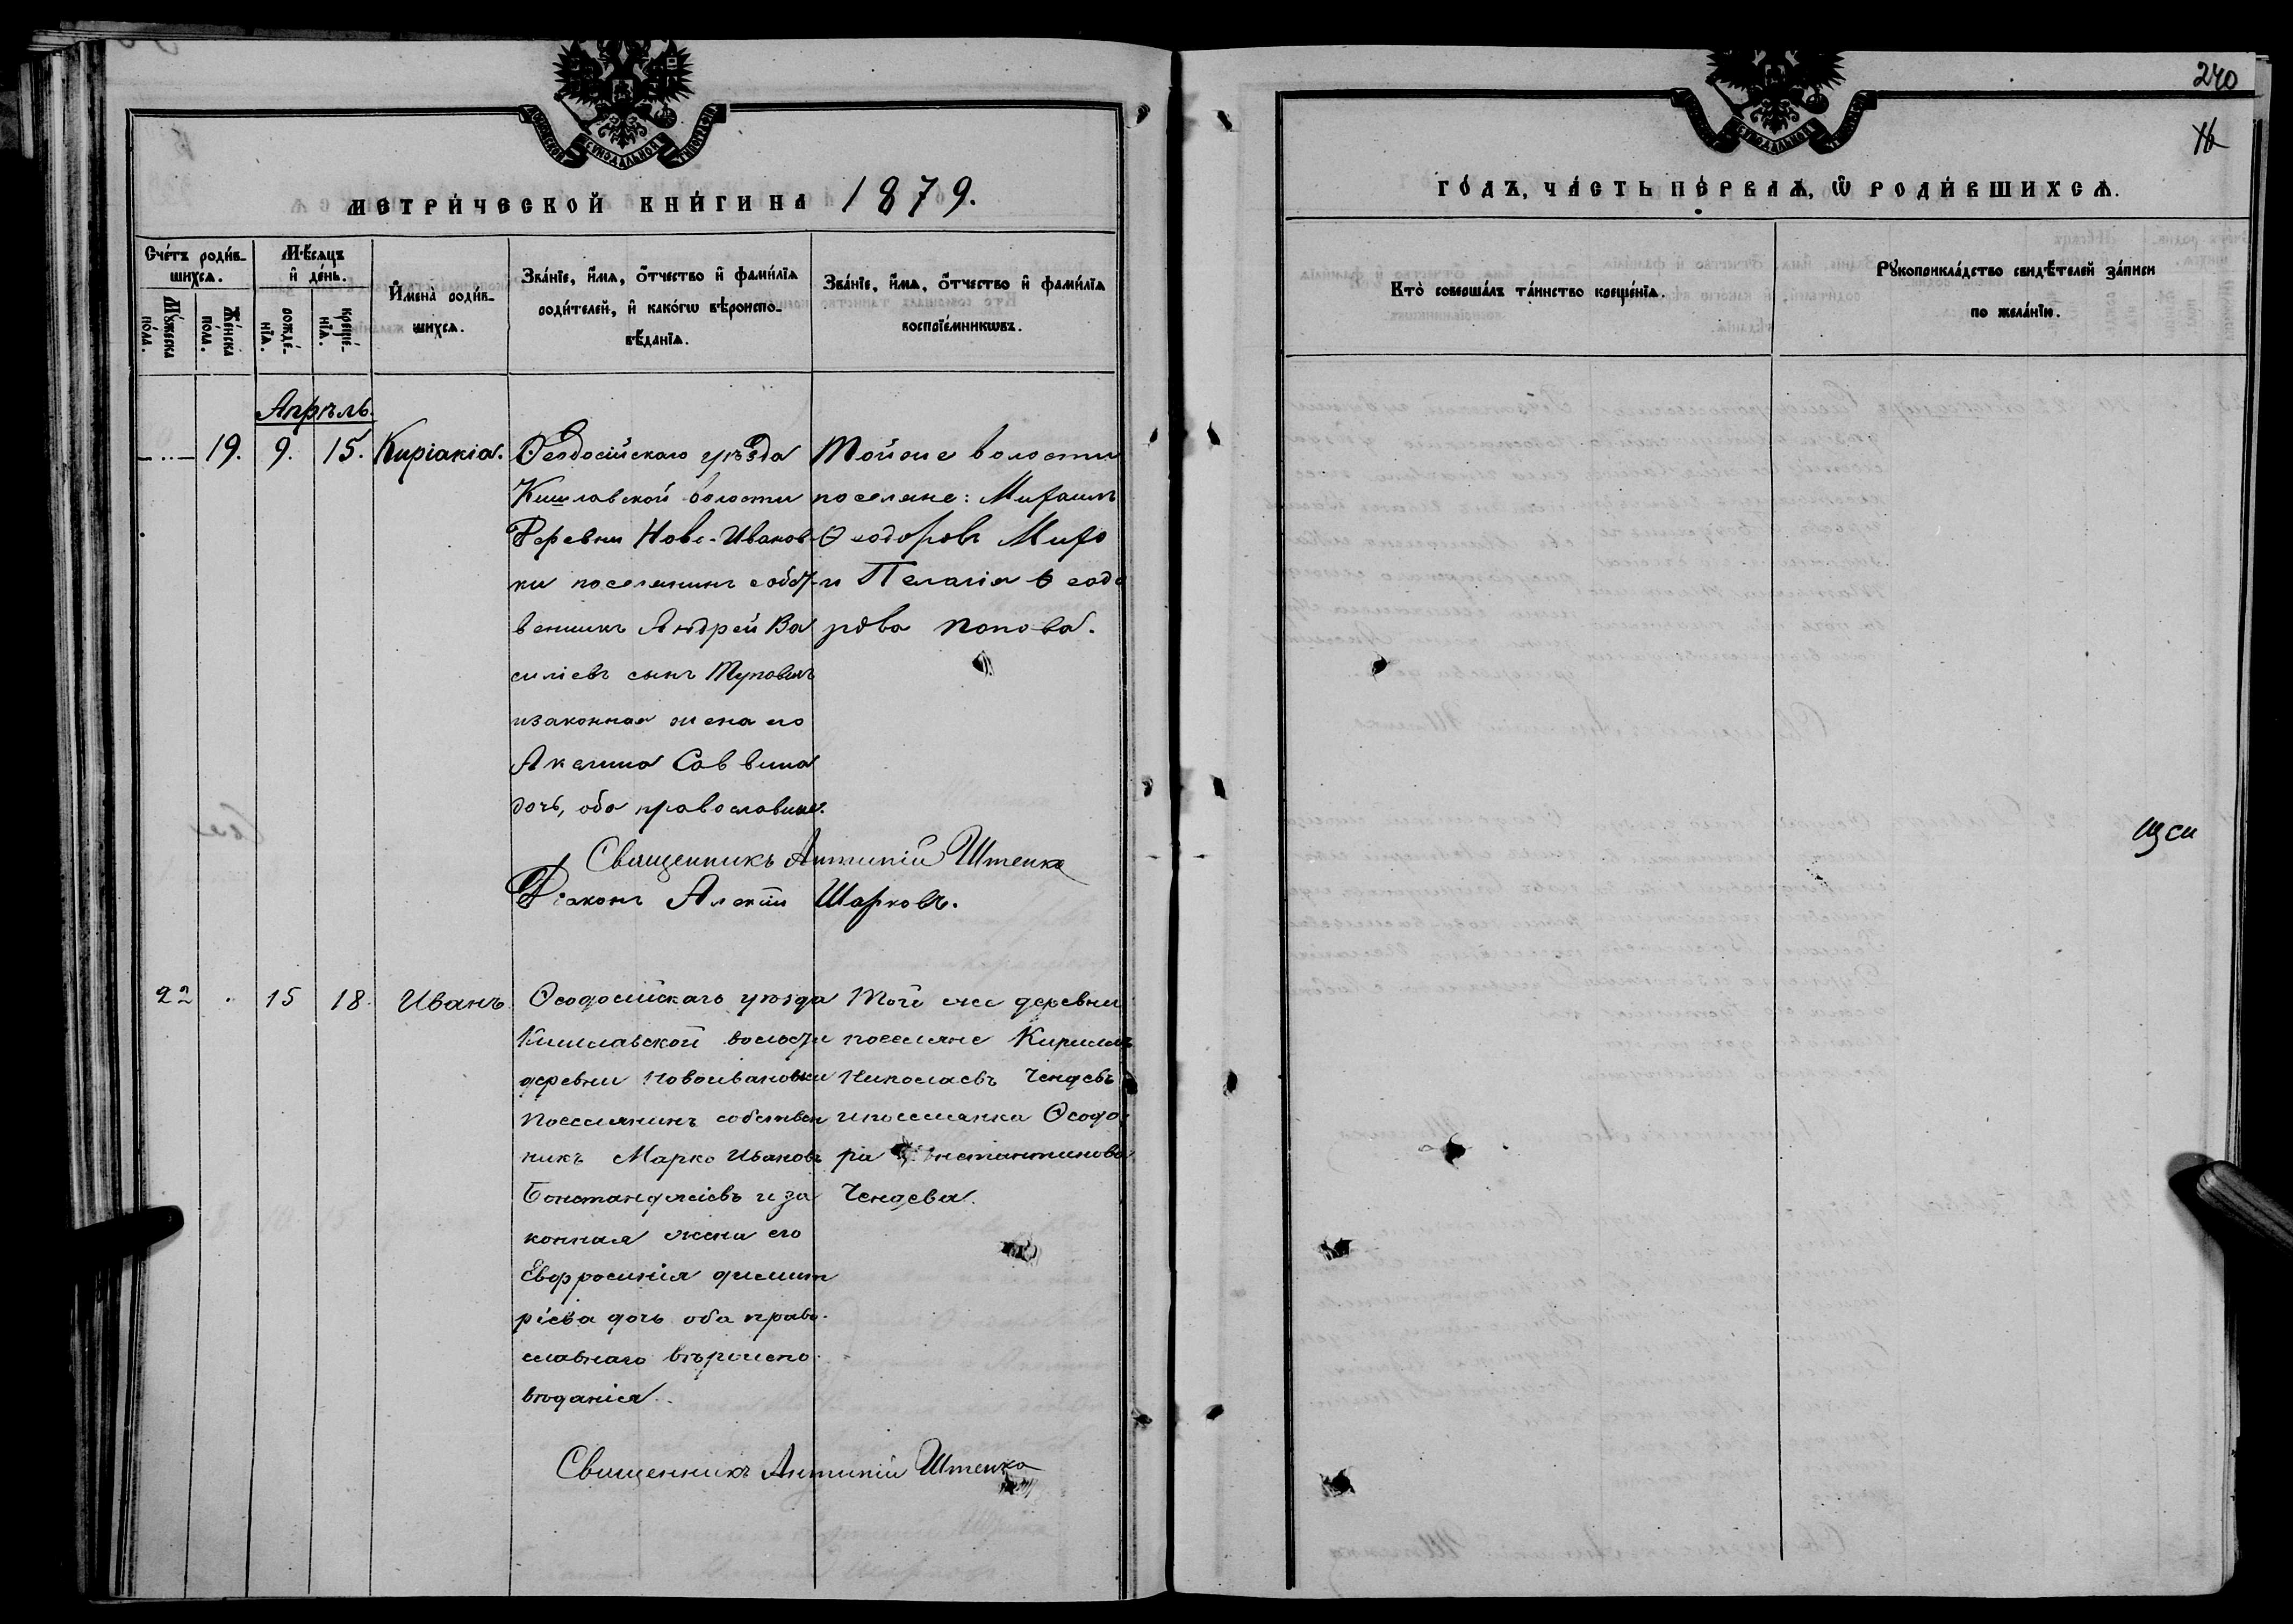 МОСКОВСКОЙ СѴНОДАЛЬНОЙ ТИПОГРАФІИ
МЕТРИ́ЧЕСКОЙ КНИ́ГИ НА 1879.
Сче́тъ роди́в-
шихсѧ.
Мѣ́сѧцъ
и҆ де́нь.
Мꙋ́жеска
по́ла.
Же́нска
по́ла.
рожде́-
нїѧ.
креще́-
нїѧ.
И҆мена̀ роди́в-
шихсѧ.
Зва́нїе, и҆́мѧ, ѻ҆́тчество и҆ фами́лїѧ
роди́телей, и҆ како́гѡ вѣроиспо-
вѣ́данїѧ.
Зва́нїе, и҆́мѧ, ѻ҆́тчество и҆ фами́лїѧ
воспрїе́мникѡвъ.
Апрѣль.
19. 9. 15. Киріакіа.
Ѳеодосійскаго уѣзда
Кишлавской волости
Деревни Ново-Иванов-
ки поселянинъ собст-
венникъ Андрей Ва
силіевъ сынъ
и законная жена его
Акилина Саввина
дочь, оба православные.
Тойже волости
поселяне: Михаилъ
Ѳеодоровъ
и Пелагія Ѳеодо
рова Попова.
Священникъ Антипій Штепко
Діаконъ Алексій Шарковъ.
22 15 18. Иванъ.
Ѳеодосійскаго уѣзда
Кишлавской волости
деревни Новоивановки
Поселянинъ собствен
никъ Марко Ивановъ
и за
конная жена его
Евфросинія Димит
ріева дочь оба право-
славнаго вѣроиспо-
вѣданія.
Той же деревни
поселяне Кириллъ
Николаевъ Чендевъ
и поселянка Ѳеодо-
ра Константинова
Чендева.
Священникъ Антипій Штепко
240
16
МОСКОВСКОЙ СѴНОДАЛЬНОЙ ТИПОГРАФІИ
ГО́ДЪ, ЧА́СТЬ ПЕ́РВАѦ, Ѽ РОДИ́ВШИХСѦ.
Кто̀ соверша́лъ та́инство креще́нїѧ.
Рꙋкоприкла́дство свидѣ́телей за́писи
по жела́нїю.